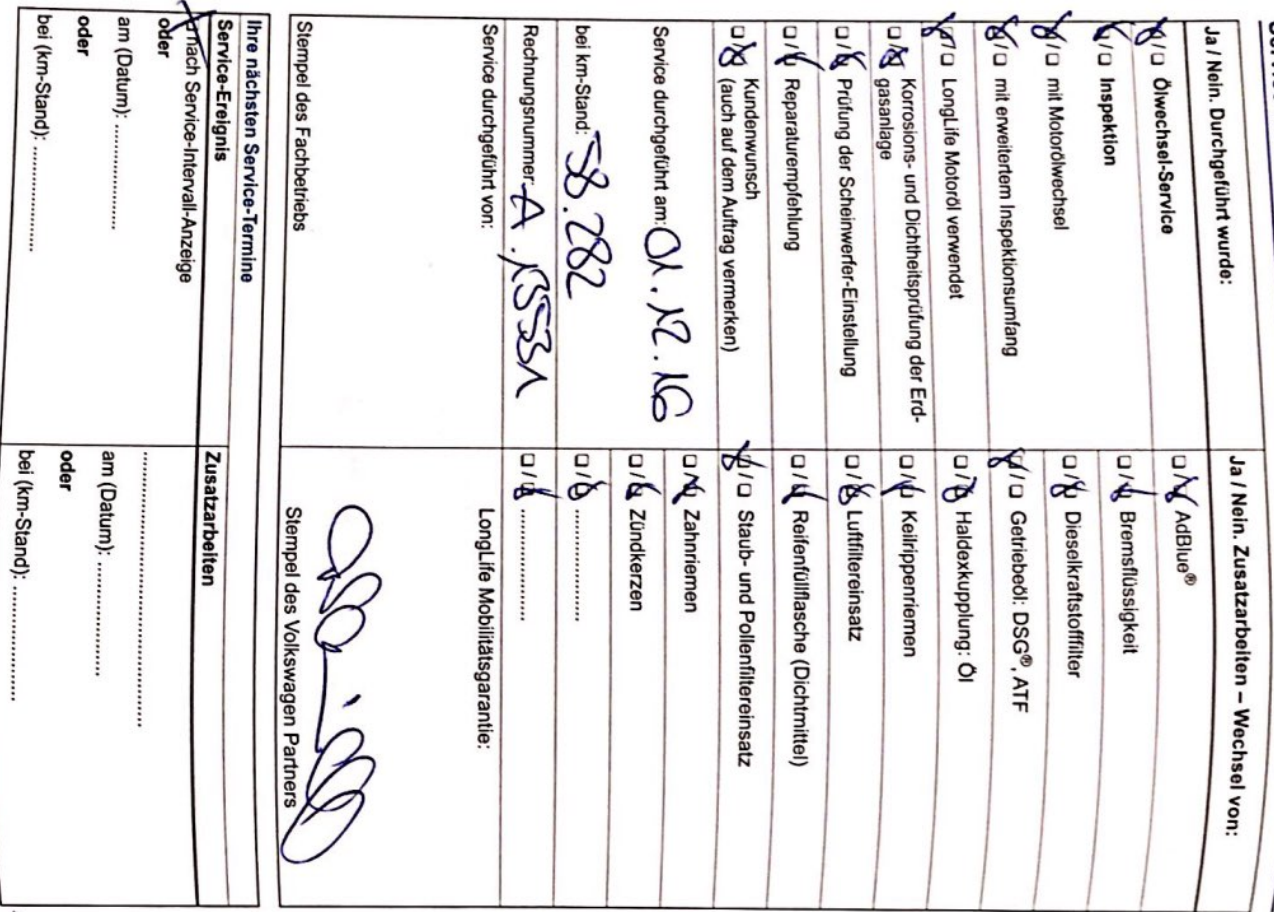 Ja / Nein. Durchgeführt wurde:
□/□ Ölwechsel-Service
□/□ Inspektion
□/□ mit Motorölwechsel
□/□ mit erweitertem Inspektionsumfang
□/□ LongLife Motoröl verwendet
□/□ Korrosions- und Dichtheitsprüfung der Erd-
gasanlage
□/□ Prüfung der Scheinwerfer-Einstellung
□/□ Reparaturempfehlung
□/□ Kundenwunsch
(auch auf dem Auftrag vermerken)
Service durchgeführt am: 01.12.16
bei km-Stand: 58.282
Rechnungsnummer: A.15531
Service durchgeführt von:
Stempel des Fachbetriebs
Ja / Nein. Zusatzarbeiten – Wechsel von:
□/□ AdBlue®
□/□ Bremsflüssigkeit
□/□ Dieselkraftstofffilter
□/□ Getriebeöl: DSG®, ATF
□/□ Haldexkupplung: Öl
□/□ Keilrippenriemen
□/□ Luftfiltereinsatz
□/□ Reifenfüllflasche (Dichtmittel)
□/□ Staub- und Pollenfiltereinsatz
□/□ Zahnriemen
□/□ Zündkerzen
□/□ ..................
□/□ ..................
LongLife Mobilitätsgarantie:
Stempel des Volkswagen Partners
Ihre nächsten Service-Termine
Service-Ereignis
□ nach Service-Intervall-Anzeige
oder
am (Datum): ..................
oder
bei (km-Stand): ..................
Zusatzarbeiten
..........................................
am (Datum): ..................
oder
bei (km-Stand): ..................